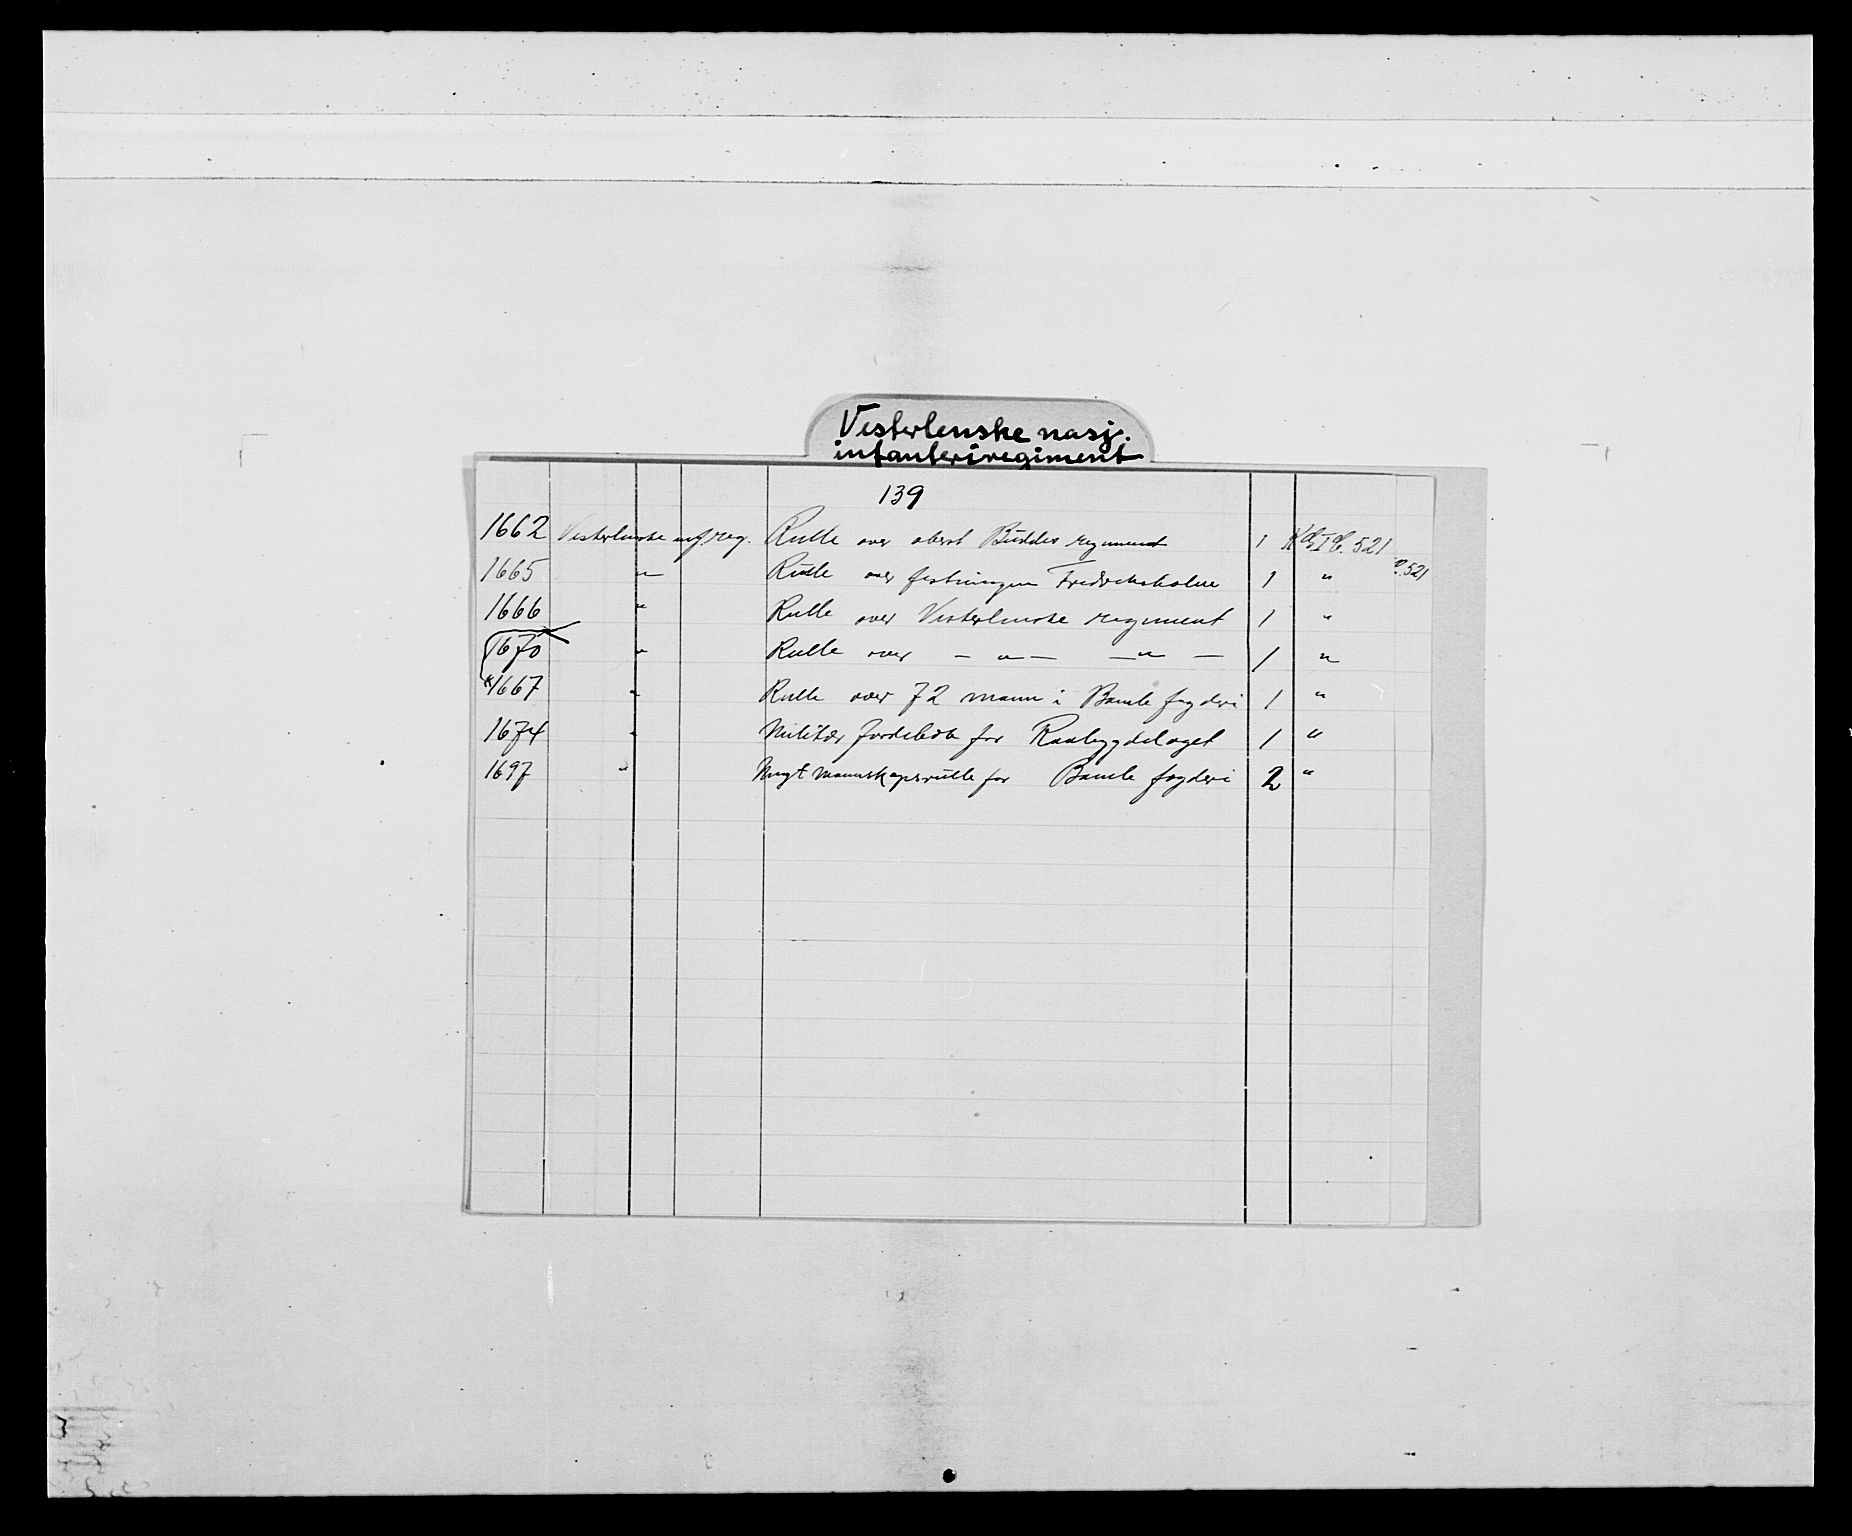 Vesterlenske nasj.
infanteriregiment
139
1662 Vesterlenske inf. reg. Rulle over oberst Buddes regiment 1 521
1665 " Rulle over festningen Fredriksholm 1 " 521
1666 " Rulle over Vesterlenske regiment 1 "
1670 " Rulle over — " — — " — 1 "
1667 " Rulle over 72 mann i Bamle fogderi 1 "
1674 " Militær for Raabygdelaget 1 "
1697 " mannskapsrulle for Bamle fogderi 2 "